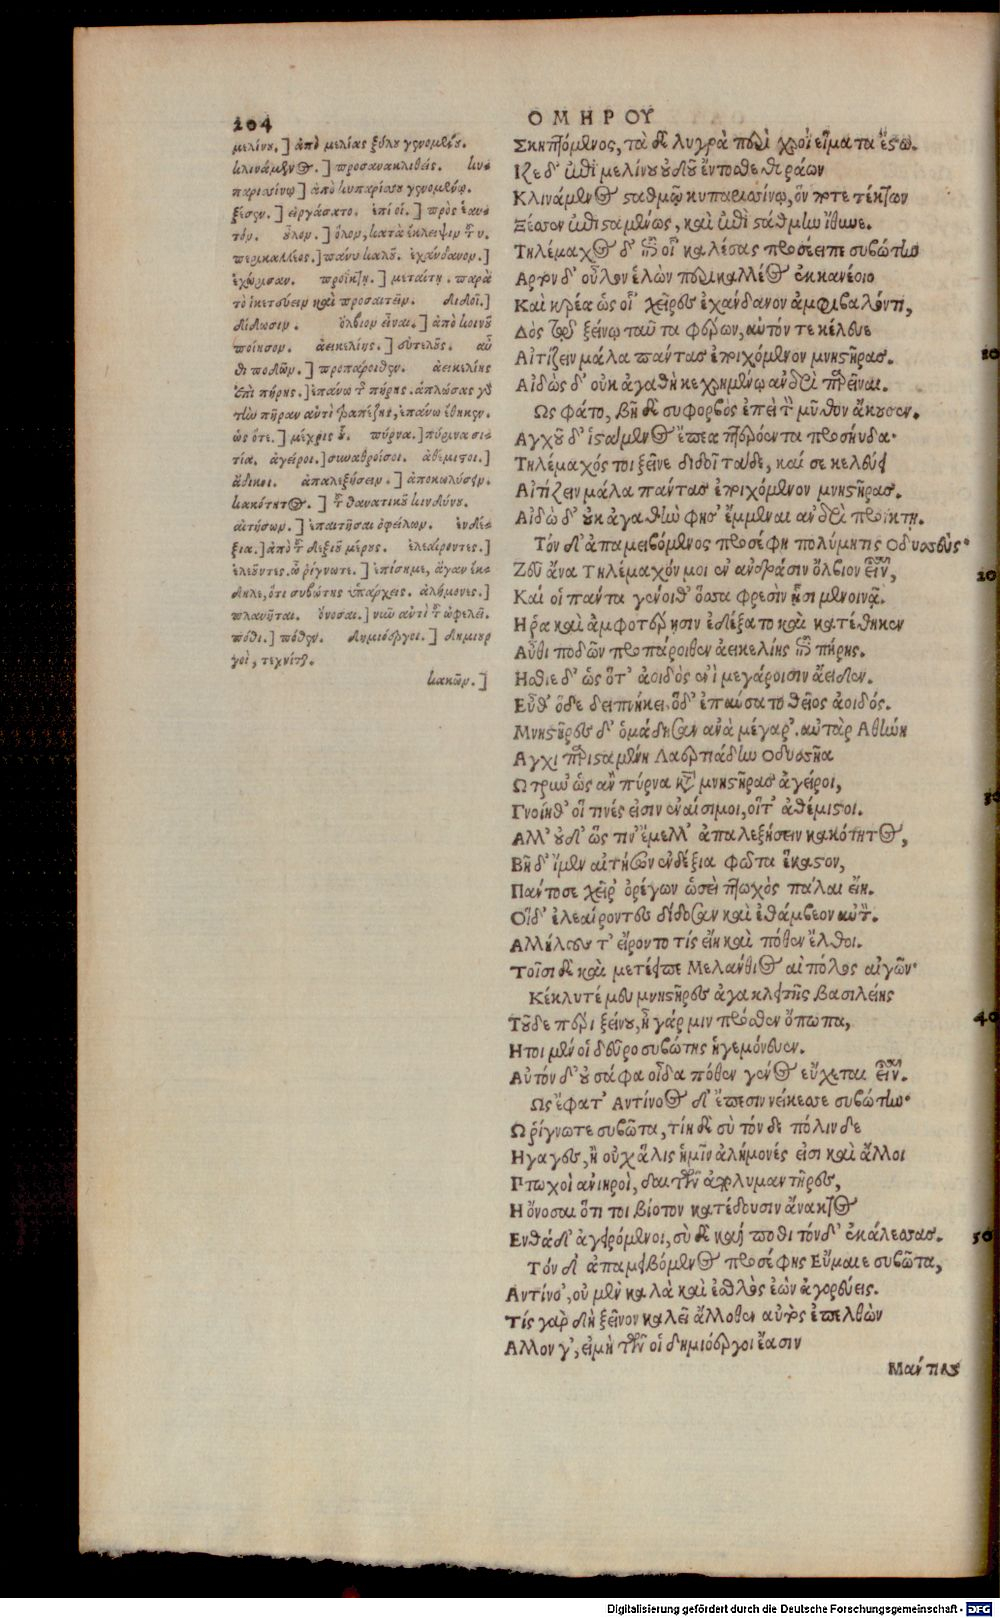 204
ΟΜΗΡΟΥ
μελίνου.] ἀπὸ μελίας ξύλου γενομένου.
κλινάμενος.] προσανακλιθείς. κυ-
παρισσίνῳ] ἀπὸ κυπαρίσσου γενομένῳ.
ξέσεν.] εἰργάσατο. ἐπί οἱ.] πρὸς ἑαυ-
τόν. οὖλον.] ὅλον, κατὰ ἔκλειψιν τοῦ υ.
περικαλλέος.] πάνυ καλοῦ. ἐχάνδανον.]
ἐχώρησαν. προΐκτῃ.] μεταίτῃ. παρὰ
τὸ ἱκετεύειν καὶ προσαιτεῖν. διδοῖ.]
δίδωσιν. ὄλβιον εἶναι.] ἀπὸ κοινοῦ
ποίησον. ἀεικελίης.] εὐτελοῦς. αὖ
θι ποδῶν.] προπάροιθεν. ἀεικελίης
ἐπὶ πήρης.] ἐπάνω τῆς πήρης. ἁπλώσας γὰρ
τὴν πῆραν αὐτὶ τραπέζης, ἐπάνω ἔθηκεν.
ὡς ὅτε.] μέχρις οὗ. πύρνα.] πύρινα σι-
τία. ἀγείροι.] συναθροίσοι. ἀθέμιστοι.]
ἄδικοι. ἀπαλεξήσειν.] ἀποκωλύσειν.
κακότητος.] τοῦ θανατικοῦ κινδύνου.
αἰτήσων.] ἐπαιτῆσαι ὀφείλων. ἐνδέ-
ξια.] ἀπὸ τοῦ δεξιοῦ μέρους. ἐλεαίροντες.]
ἐλεοῦντες. ὦ ῥίγνωτε.] ἐπίσημε, ἄγαν ἔκ-
δηλε, ὅτι συβώτης ὑπάρχεις. ἀλήμονες.]
πλανῆται. ὄνοσαι.] νῦν αὐτὶ τοῦ ὠφελεῖ.
πόθι.] πόθεν. δημιοεργοι.] δημιουρ
γοὶ, τεχνίται.
κακῶν.]
Σκηπτόμενος, τὰ δὲ λυγρὰ περὶ χροῒ εἵματα ἕστο.
Ιζε δ' ἐπὶ μελίνου οὐδοῦ ἔντοσθε θυράων
Κλινάμενος σταθμῷ κυπαρισσίνῳ, ὅν ποτε τέκτων
Ξέσσεν ἐπισταμένως, καὶ ἐπὶ στάθμην ἴθυνε.
Τηλέμαχος δ' ἐπὶ οἷ καλέσας προσέειπε συβώτην
Αρτον δ' οὖλον ἑλὼν περικαλλέος ἐκ κανέοιο
Καὶ κρέα ὡς οἷ χεῖρες ἐχάνδανον ἀμφιβαλόντι,
Δὸς τῷ ξείνῳ ταῦτα φέρων, αὐτόν τε κέλευε
Αἰτίζειν μάλα πάντας ἐποιχόμενον μνηστῆρας. 10
Αἰδὼς δ' οὐκ ἀγαθὴ κεχρημένῳ ἀνδρὶ παρεῖναι.
Ως φάτο, βῆ δὲ συφορβὸς ἐπεὶ τὸν μῦθον ἄκουσεν.
Αγχοῦ δ' ἱστάμενος ἔπεα πτερόεντα προσηύδα·
Τηλέμαχός τοι ξεῖνε διδοῖ τάδε, καί σε κελεύει
Αἰτίζειν μάλα πάντας ἐποιχόμενον μνηστῆρας.
Αἰδὼ δ' οὐκ ἀγαθὴν φησ' ἔμμεναι ἀνδρὶ προΐκτῃ.
Τόν δ' ἀπαμειβόμενος προσέφη πολύμητις Οδυσσεύς·
Ζεῦ ἄνα Τηλέμαχόν μοι ἐν ἀνδράσιν ὄλβιον εἶναι, 20
Καὶ οἱ πάντα γένοιθ' ὅσσα φρεσὶν ᾗσι μενοινᾷ.
Η ῥα καὶ ἀμφοτέρῃσιν ἐδέξατο καὶ κατέθηκεν
Αὖθι ποδῶν προπάροιθεν ἀεικελίης ἐπὶ πήρης.
Ησθιε δ' ὡς ὅτ' ἀοιδὸς ἐνὶ μεγάροισιν ἄειδεν.
Εὖθ' ὅδε δειπνήκει, ὅδ' ἐπαύσατο θεῖος ἀοιδός.
Μνηστῆρες δ' ὁμάδησαν ἀνὰ μέγαρ', αὐτὰρ Αθήνη
Αγχι παρισταμένη Λαερτιάδην Οδυσσῆα
Ωτρυν' ὡς ἂν πύρνα κατὰ μνηστῆρας ἀγείροι, 30
Γνοίηθ' οἵ τινές εἰσιν ἐναίσιμοι, οἵτ' ἀθέμιστοι.
Αλλ' οὐδ' ὥς τιν' ἔμελλ' ἀπαλεξήσειν κακότητος,
Βῆ δ' ἴμεν αἰτήσων ἐνδέξια φῶτα ἕκαστον,
Πάντοσε χεῖρ' ὀρέγων ὡσεὶ πτωχὸς πάλαι εἴη.
Οἵδ' ἐλεαίροντες δίδοσαν καὶ ἐθάμβεον αὐτόν.
Αλλήλους τ' εἴροντο τίς εἴη καὶ πόθεν ἔλθοι.
Τοῖσι δὲ καὶ μετέειπε Μελάνθιος αἰπόλος αἰγῶν·
Κέκλυτέ μευ μνηστῆρες ἀγακλειτῆς βασιλείης
Τοῦδε περὶ ξείνου, ἦ γάρ μιν πρόσθεν ὄπωπα, 40
Ητοι μέν οἱ δεῦρο συβώτης ἡγεμόνευεν.
Αὐτόν δ' οὐ σάφα οἶδα πόθεν γένος εὔχεται εἶναι.
Ως ἔφατ' Αντίνοος δ' ἔπεσιν νείκεσσε συβώτην·
Ω ῥίγνωτε συβῶτα, τίη δὲ σὺ τόνδε πόλινδε
Ηγαγες, ἢ οὐχ ἅλις ἡμῖν ἀλήμονές εἰσι καὶ ἄλλοι
Πτωχοὶ ἀνιηροὶ, δαιτῶν ἀπολυμαντῆρες,
Η ὄνοσαι ὅτι τοι βίοτον κατέδουσιν ἄνακτος
Ενθάδ' ἀγειρόμενοι, σὺ δὲ καί ποθι τόνδ' ἐκάλεσσας. 50
Τόν δ' ἀπαμειβόμενος προσέφης Εὔμαιε συβῶτα,
Αντίνο', οὐ μὲν καλὰ καὶ ἐσθλὸς ἐὼν ἀγορεύεις.
Τίς γὰρ δὴ ξεῖνον καλεῖ ἄλλοθεν αὐτὸς ἐπελθὼν
Αλλον γ', εἰ μὴ τῶν οἱ δημιόεργοι ἔασιν
Μάντιν
Digitalisierung gefördert durch die Deutsche Forschungsgemeinschaft - DFG